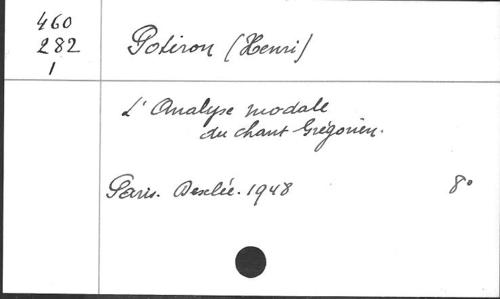 460
282
1
Potiron (Henri)
L'Analyse modale
du chant Grégorien.
Paris. Desclée. 1948 8°